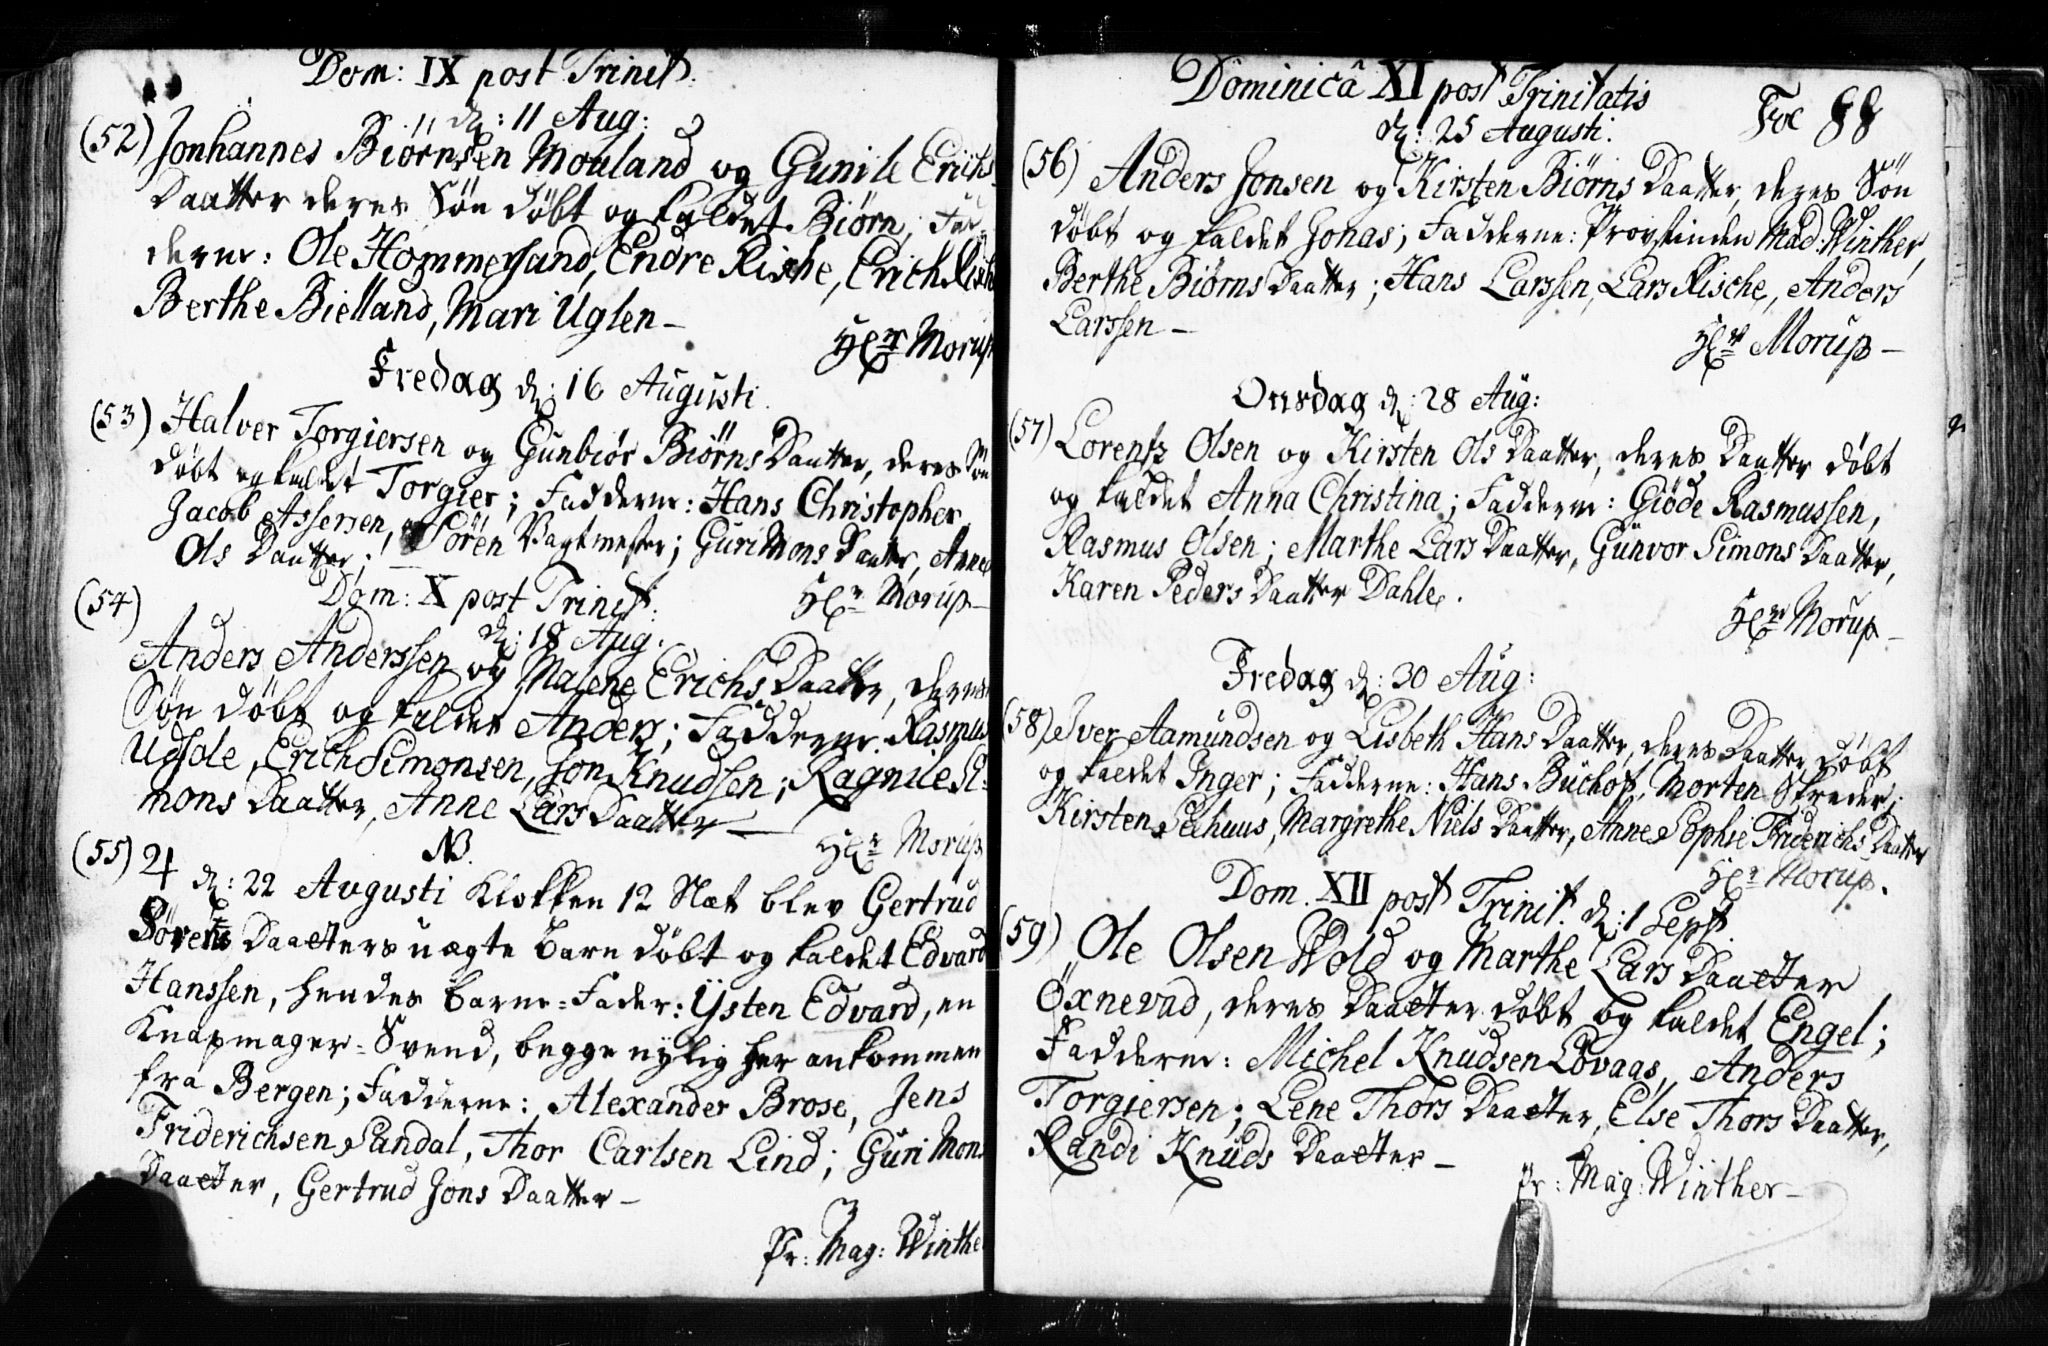 Dom: IX post Trinit:
d: 11 Aug:
(52) Jonhannes Biørnsen Mouland og Gunile Erichs
Daatter deres Søn døbt og kaldet Biørn; Fad-
derne: Ole Hommersand, Endre Rische, Erich Risch
Berthe Bielland, Mari Uglen –
Hr Morup
Fredag d: 16 Augusti.
(53) Halver Torgiersen og Gunbiør Biørns Daatter, deres Søn
døbt og kaldet Torgier; Fadderne: Hans Christopher
Jacob Assersen, Søren Vagtmester; Guri Mons Daatter, Anne
Ols Daatter;
Dom: X post Trinit:
Hr Morup –
d: 18 Aug:
(54) Anders Anderssen og Malene Erichs Daatter, deres
Søn døbt og kaldet Anders; Fadderne: Rasmus
Udsole, Erich Simonsen, Jon Knudsen; Ragnile Si-
mons Daatter, Anne Lars Daatter –
Hr Morup
NB.
(55) ♃ d: 22 Augusti Klokken 12 Nat blev Gertrud
Sørens Daatters uægte Barn døbt og kaldet Edvard
Hanssen, hendes Barne-Fader: Ysten Edvard, en
Knapmager-Svend, begge nylig her ankommen
fra Bergen; Fadderne: Alexander Brose, Jens
Friderichsen Sandal, Thor Carlsen Lind; Guri Mons
Daatter, Gertrud Jons Daatter –
Pr: Mag: Winthe
Dominicâ XI post Trinitatis
Foe 88
d: 25 Augusti.
(56) Anders Jonsen og Kirsten Biørns Daatter, deres Søn
døbt og kaldet Jonas; Fadderne: Provstinden Mad: Winther,
Berthe Biørns Daatter; Hans Larssen, Lars Rische, Anders
Larssen –
Hr Morup –
Onsdag d: 28 Aug:
(57) Lorentz Olsen og Kirsten Ols Daatter, deres Daatter døbt
og kaldet Anna Christina; Fadderne: Giøde Rasmussen,
Rasmus Olsen; Marthe Lars Daatter, Gunvor Simons Daatter,
Karen Peders Daatter Dahle.
Hr Morup –
Fredag d: 30 Aug:
(58) Iver Aamundsen og Lisbeth Hans Daatter, deres Daatter døbt
og kaldet Inger; Fadderne: Hans Buchof, Morten Skreder;
Kirsten Seehuus, Margrethe Niels Daatter, Anne Sophie Friderichs Daatter
Hr Morup.
Dom. XII post Trinit. d: 1 Sept.
(59) Ole Olsen Wold og Marthe Lars Daatter
Öxnevad, deres Daatter døbt og kaldet Engel;
Fadderne: Michel Knudsen Lovaas, Anders
Torgiersen; Lene Thors Daatter, Else Thors Daatter,
Randi Knuds Daatter –
Pr: Mag: Winther –